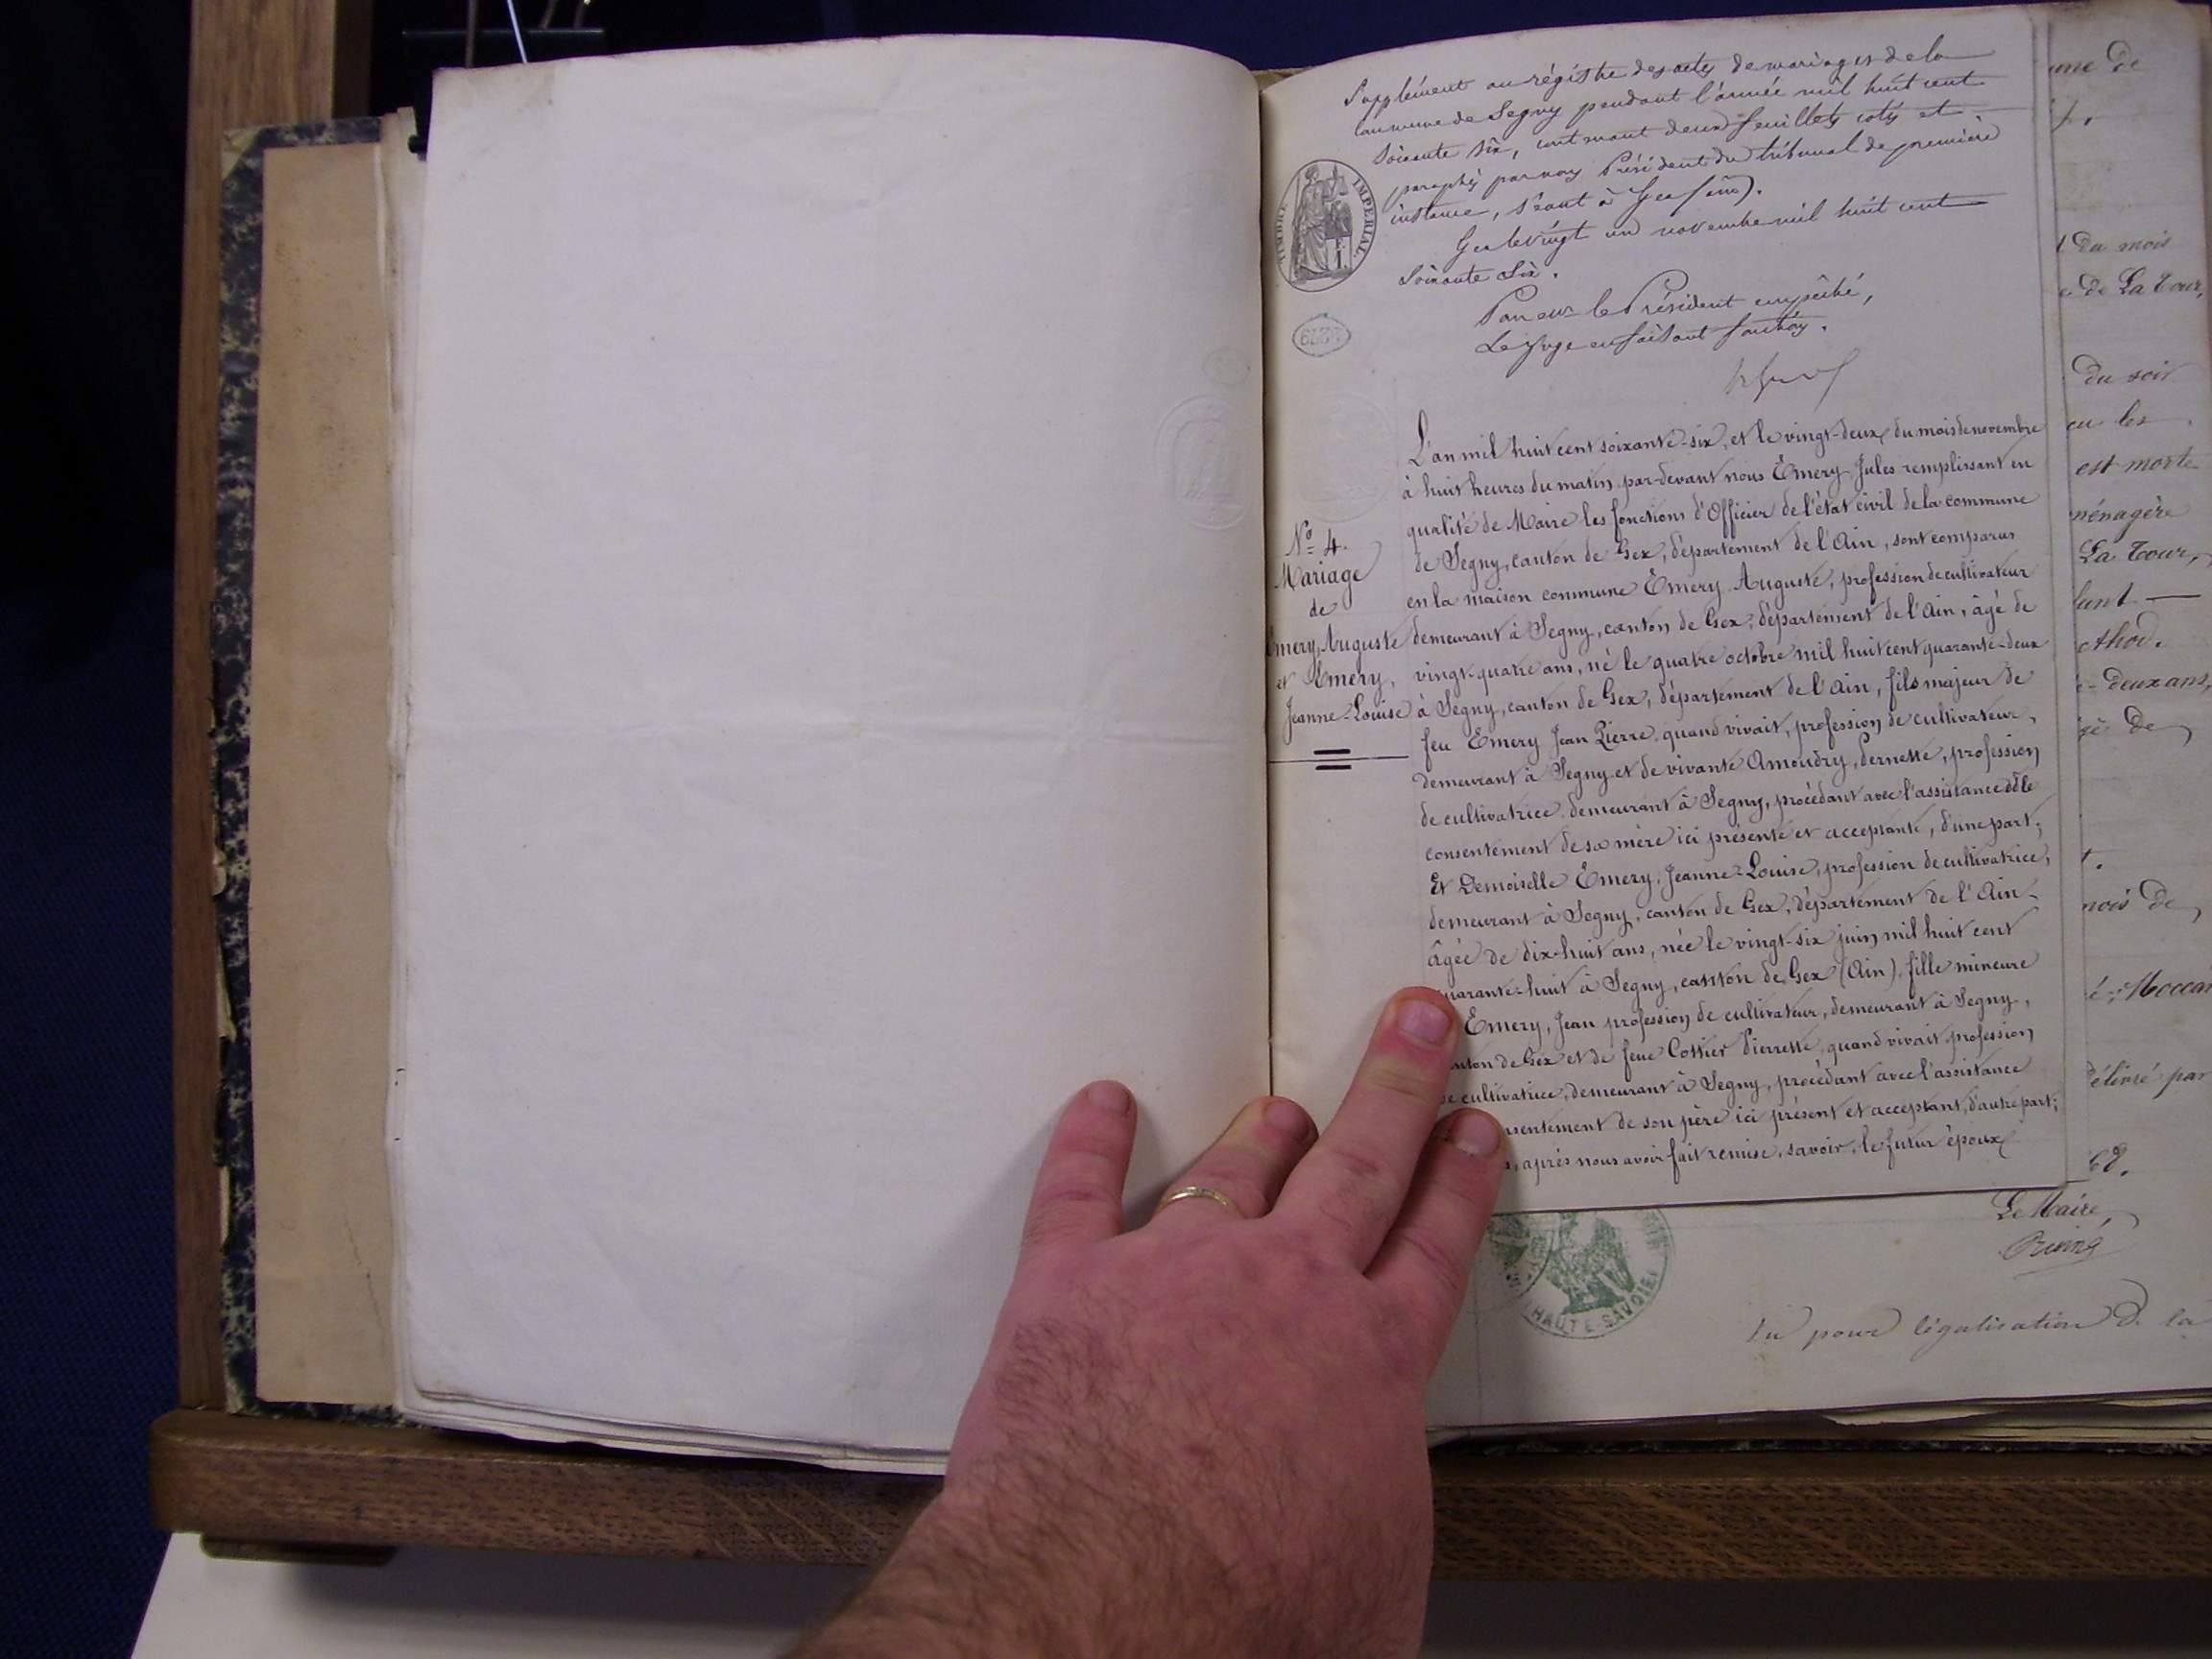 Supplément au régistre des actes de mariages de la
commune de Segny pendant l'année mil huit cent
soixante six, contenant deux feuillets cotés et
paraphés par nous Président du tribunal de première
instance, séant à Gex (ain).
Gex le vingt un novembre mil huit cent
soixante six.
Pour le Président empêché,
Le juge en faisant fonctions.
TIMBRE IMPERIAL
L'an mil huit cent soixante-six, et le vingt-deux du mois de novembre
à huit heures du matin, par-devant nous Emery Jules remplissant en
qualité de Maire les fonctions d'Officier de l'état civil de la commune
de Segny, canton de Gex, département de l'Ain, sont comparus
en la maison commune Emery Auguste, profession de cultivateur
demeurant à Segny, canton de Gex, département de l'Ain, âgé de
vingt-quatre ans, né le quatre octobre mil huit cent quarante-deux
à Segny, canton de Gex, département de l'Ain, fils majeur de
feu Emery Jean Pierre, quand vivait, profession de cultivateur,
demeurant à Segny et de vivante Amoudry, Pernette, profession
de cultivatrice demeurant à Segny, procédant avec l'assistance & le
consentement de sa mère ici présente et acceptante, d'une part;
Et Demoiselle Emery, Jeanne-Louise, profession de cultivatrice,
demeurant à Segny, canton de Gex, département de l'Ain
âgée de dix-huit ans, née le vingt-six juin mil huit cent
quarante-huit à Segny, canton de Gex (Ain), fille mineure
Emery, Jean profession de cultivateur, demeurant à Segny,
canton de Gex et de feue Cottier Pierrette, quand vivait profession
de cultivatrice, demeurant à Segny, procédant avec l'assistance
consentement de son père ici présent et acceptant, d'autre part;
après nous avoir fait remise, savoir, le futur époux
Nº 4.
Mariage
de
Emery, Auguste
et Emery,
Jeanne-Louise
une de
du mois
e de La Tour,
du soir
ou les
est morte
ménagère
La Tour,
deux ans,
de
mois de
délivré par
68.
Le Maire,
HAUTE-SAVOIE
Vu pour légalisation d. la